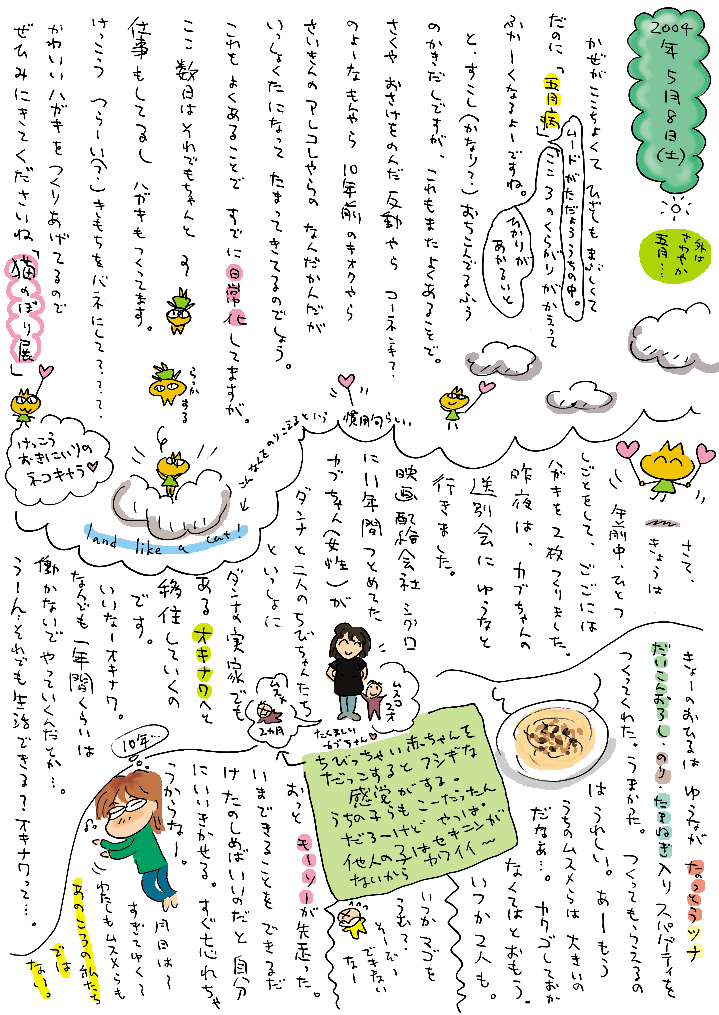 2004年5月8日(土)
外はさわやか五月…
かぜがここちよくて ひざしもまぶしくて
だのに「五月病」
ムードがただようちの中。
こころのくらがりがかえって
ふかーくなるよーですね。
ひかりがあかるいと
と、すこし(かなり?)おちこんでるふう
のかきだしですが、これもまたよくあることで。
さくや おさけをのんだ反動やら コーネンキ?
のよーなもんやら 10年前のキオクやら
さいきんのアレコレやらの なんだかんだが
いっしょくたになって たまってきてるのでしょう。
これもよくあることで すでに日常化してますが。
ここ数日はそれでもちゃんと
仕事もしてるし ハガキもつくってます。
けっこう つらーい(?)きもちをバネにして????
かわいいハガキをつくりあげてるので
ぜひみにきてくださいね「猫のぼり展」
らかする
けっこうおきにいりのネコキャラ♥
慣用句らしい
land like a cat!
さて、
きょうは
午前中、ひとつ
しごとをして、ごごには
ハガキを2枚つくりました。
昨夜は、カブちゃんの
送別会に ゆうなと
行きました。
映画配給会社シグロ
に11年間つとめてた
カブちゃん(女性)が
ダンナと二人のちびちゃんたち
といっしょに
ダンナの実家でも
あるオキナワへと
移住していくの
です。
いいなーオキナワ。
なんでも一年間くらいは
働かないでやっていくんだとか…。
うーん。それでも生活できる?オキナワって…。
ムスメ
2カ月
ムスコ
たくましいカブちゃん♥
きょーのおひるは ゆうなが なっとうツナ
だいこんおろし のり たまねぎ入り スパゲティを
つくってくれた。うまかった。 つくってもらえるの
はうれしい。あーもう
うちのムスメらは 大きいの
だなぁ…。カクゴしておか
なくてはとおもう。
いつか2人も。
いつかマゴを
うむ?
そーぞー
できない
なー
ちびっちゃい赤ちゃんを
だっこするとフシギな
感覚がする。
うちの子らもこーだったん
だろーけど やっぱ。
他人の子はセキニンが
ないからカワイイ〜
おっと キーソーが先走った。
いまできることを できるだ
けたのしめばいいのだと 自分
にいいきかせる。すぐ忘れちゃ
うからなー。
月日は?
すぎてゆくて
わたしもムスメらも
あのころの私たち
では
ない。
10年…